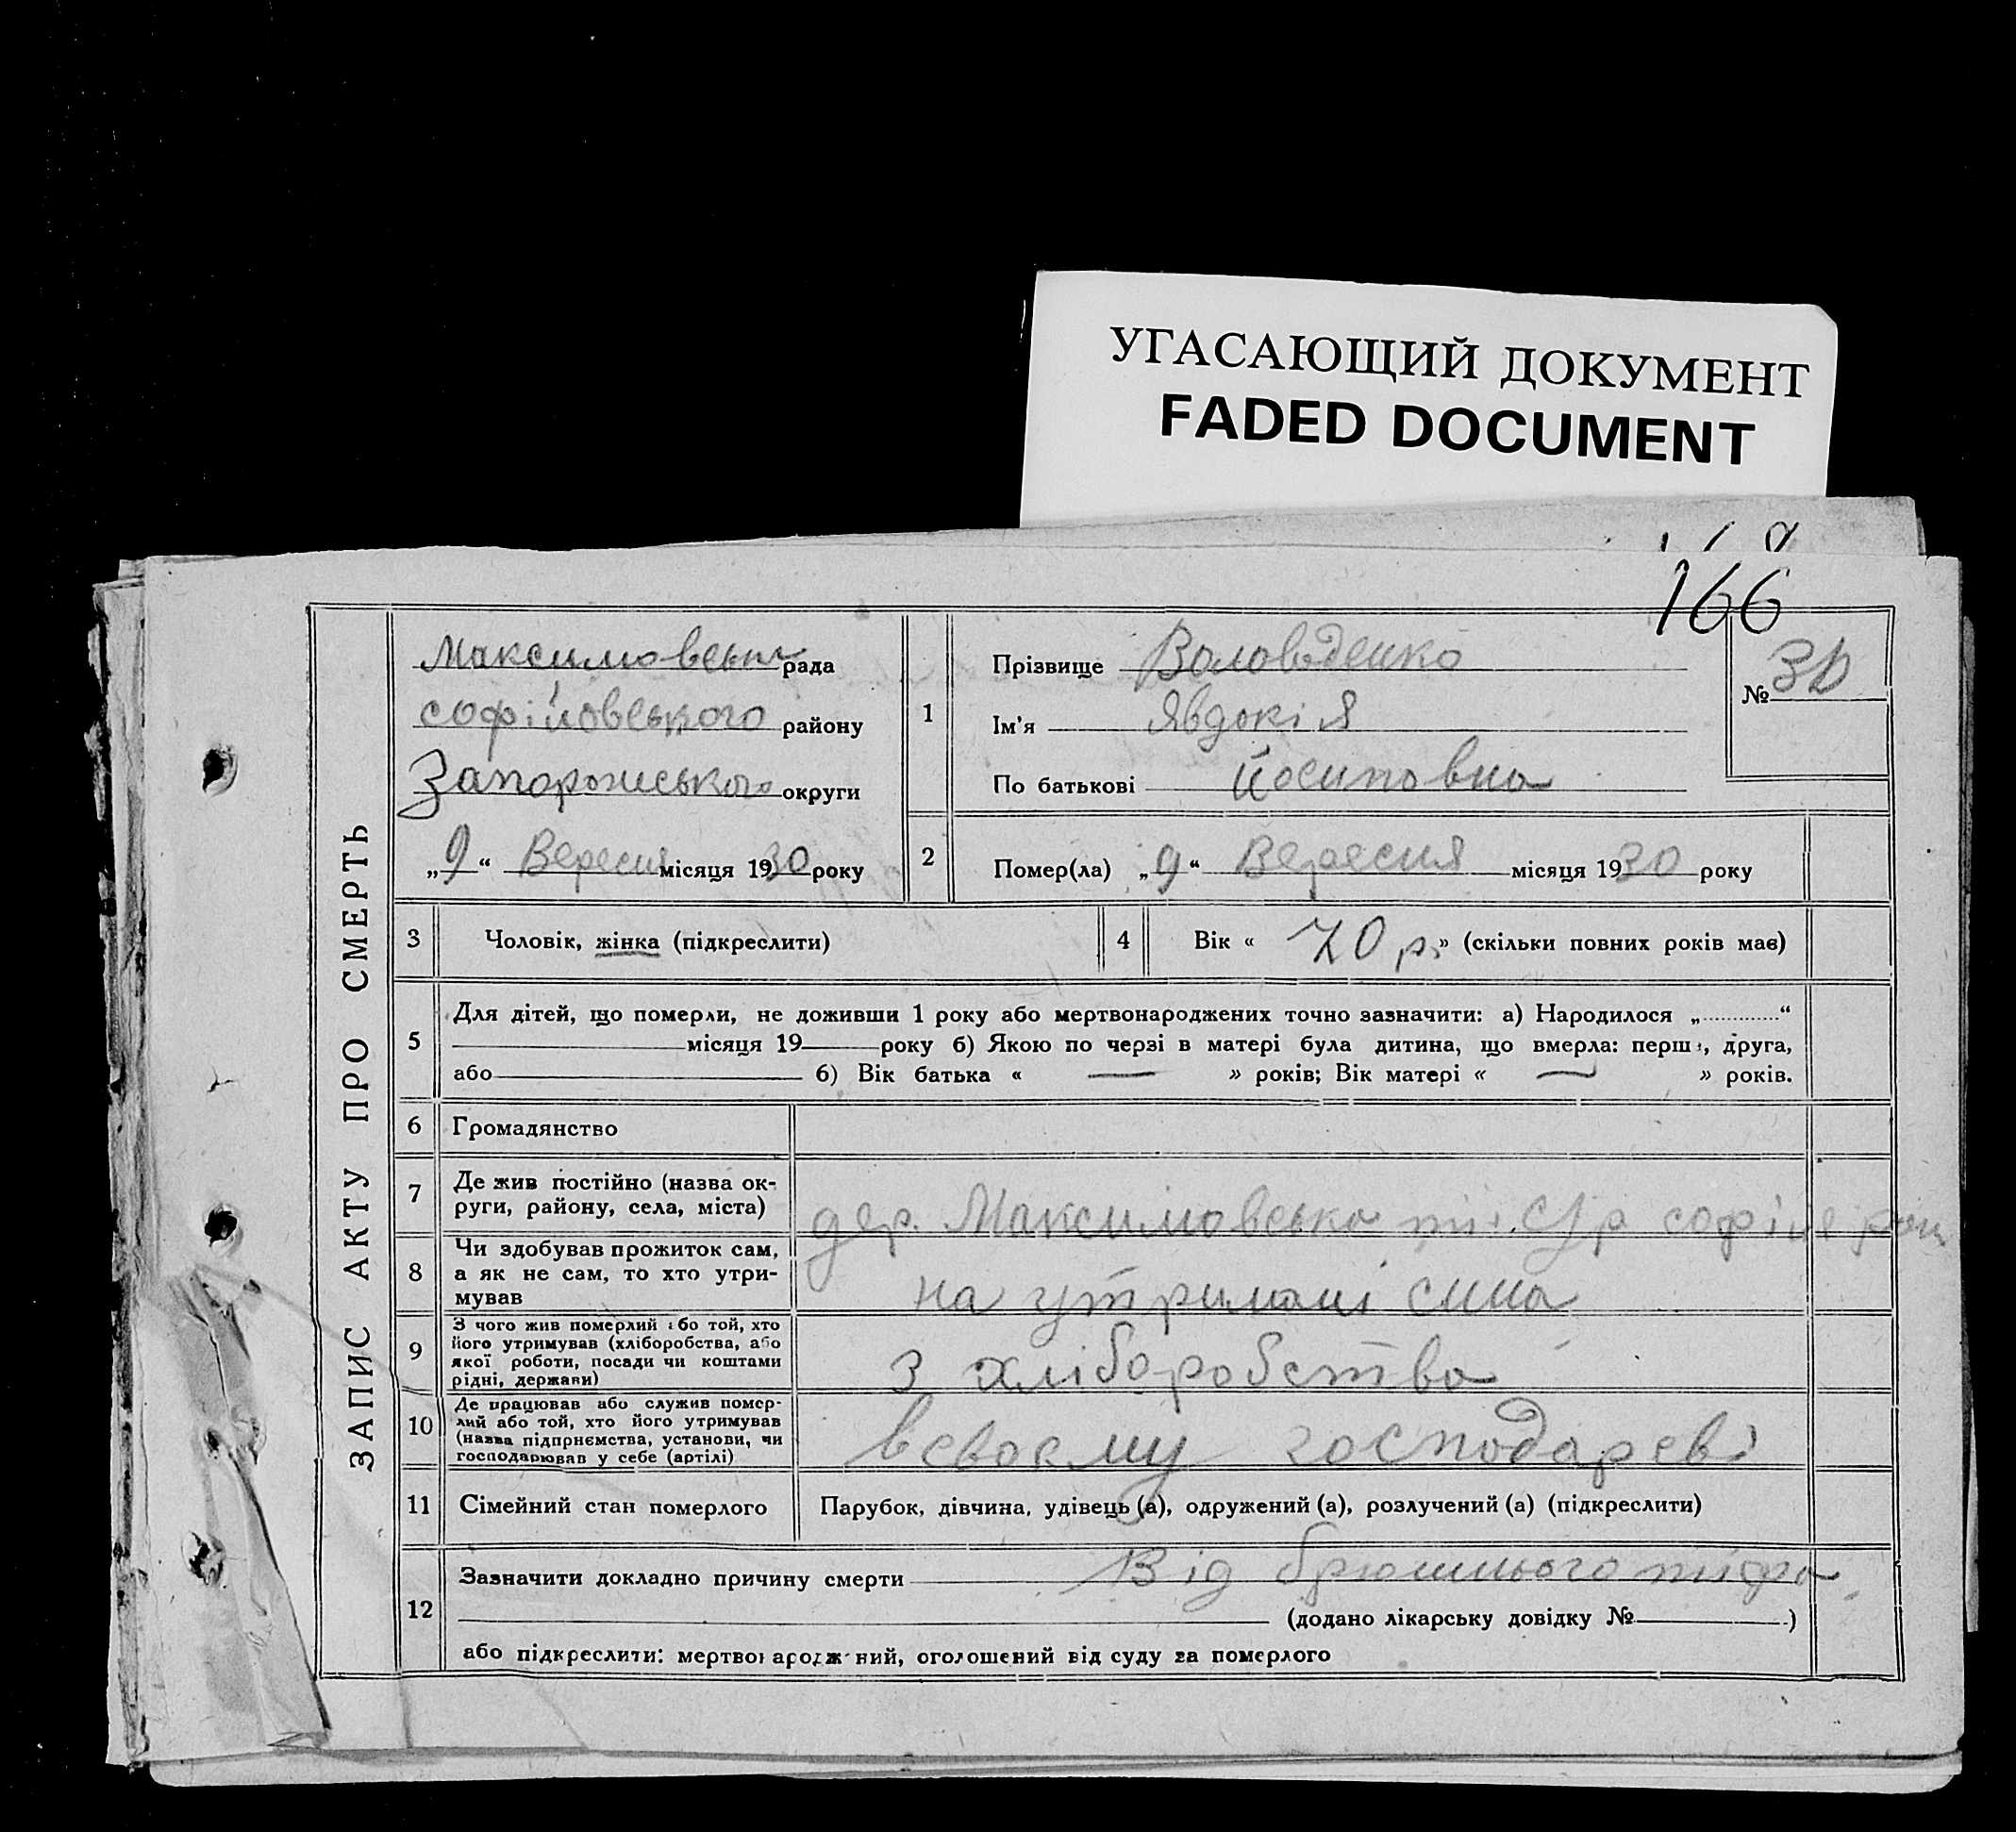 УГАСАЮЩИЙ ДОКУМЕНТ
FADED DOCUMENT
166
ЗАПИС АКТУ ПРО СМЕРТЬ
Максимовська рада
софіївського району
Запорожського округи
„9“ Вересня місяця 1930 року
1
Прізвище Воловоденко
Ім'я Явдокія
По батькові Йосиповна
№ 30
2
Помер(ла) „9“ Вересня місяця 1930 року
3 Чоловік, жінка (підкреслити)
4 Вік « 70 р. » (скільки повних років має)
5 Для дітей, що померли, не доживши 1 року або мертвонароджених точно зазначити: а) Народилося „............“
місяця 19 року б) Якою по черзі в матері була дитина, що вмерла: перш, друга,
або б) Вік батька « — » років; Вік матері « — » років.
6 Громадянство
7 Де жив постійно (назва ок-
руги, району, села, міста)
дер. Максимовська с/р софіїв
8 Чи здобував прожиток сам,
а як не сам, то хто утри-
мував
на утримані сина
9 З чого жив померлий або той, хто
його утримував (хліборобства, або
якої роботи, посади чи коштами
рідні, держави)
з хліборобства
10 Де працював або служив помер-
лий або той, хто його утримував
(назва підпрнємства, установи, чи
господарював у себе (артілі)
всвоєму господареві
11 Сімейний стан померлого
Парубок, дівчина, удівець (а), одружений (а), розлучений (а) (підкреслити)
12 Зазначити докладно причину смерти Від брюшнього тифа
(додано лікарську довідку № )
або підкреслити: мертвонароджений, оголошений від суду за померлого